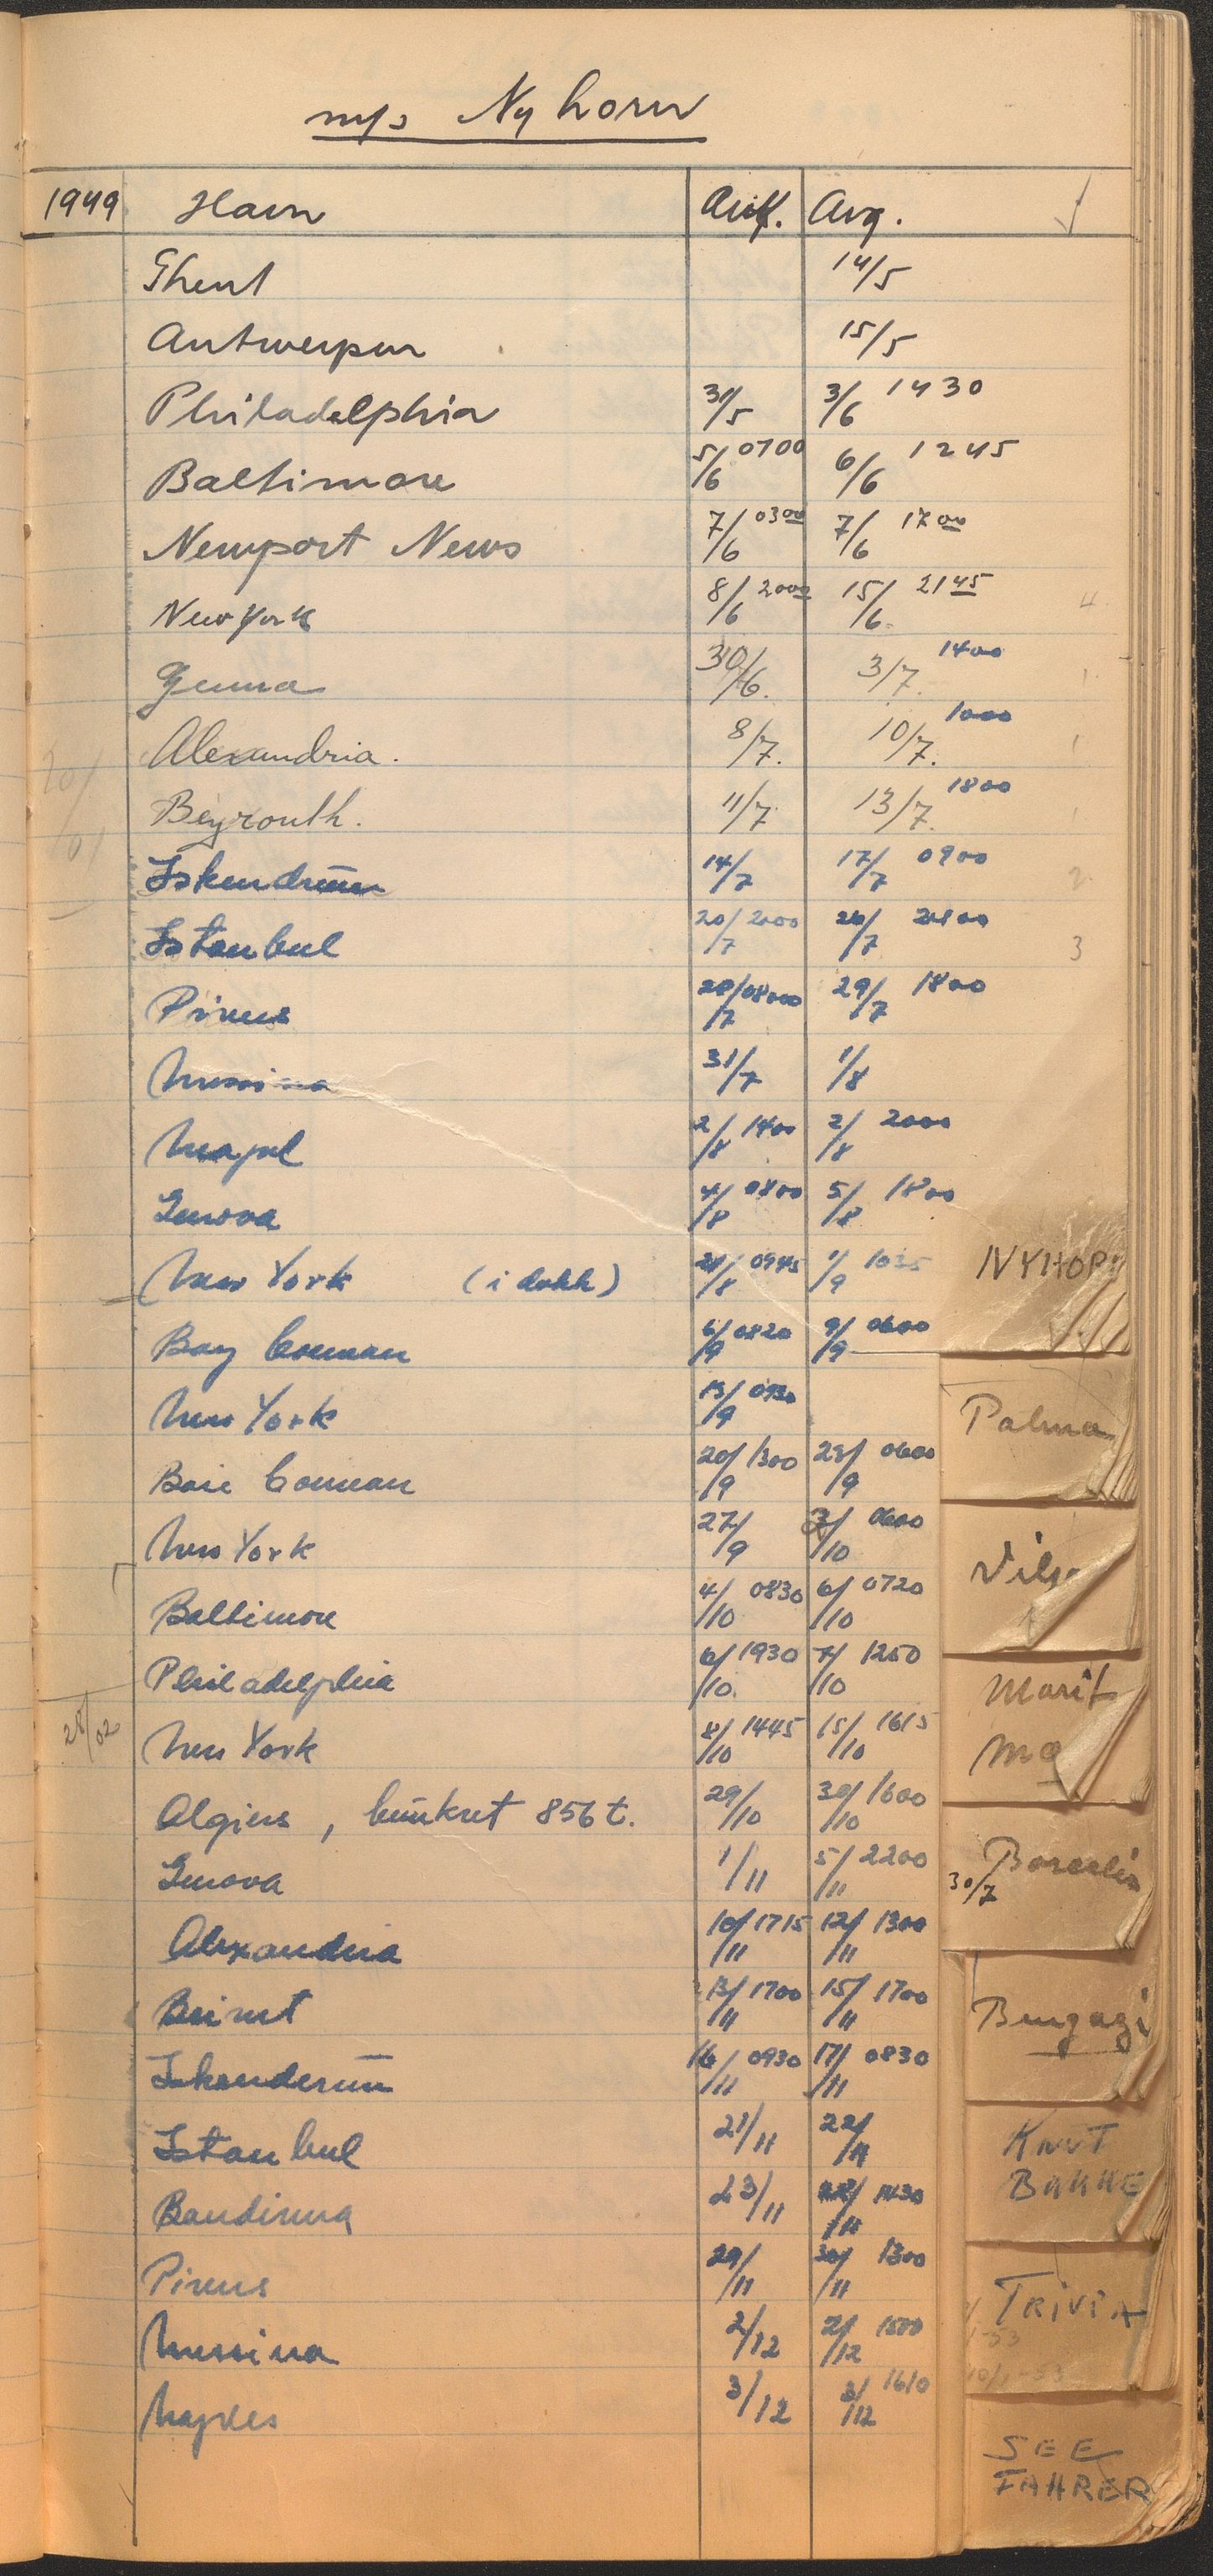 m/s Nyhorn
1949 Havn Ank. Avg.
Ghent 14/5
Antwerpen 15/5
Philadelphia 31/5 3/6 1430
Baltimore 5/6 0700 6/6 1245
Newport News 7/6 0300 7/6 1700
New York 8/6 2000 15/6 2145 4
Genua 30/6. 3/7. 1400 1
Alexandria. 8/7. 10/7. 1000 1
Beyrouth. 11/7 13/7. 1800 1
Iskendrun 14/7 17/7 0900 2
Istanbul 20/7 2000 26/7 3
Pireus 28/7 29/7 1800
Messina 31/7 1/8
Neapel 2/8 1400 2/8 2000
Genova 4/8 0800 5/8 1800
New York (i dokk) 0945 1/9 1035
Bay Comeau 6/9 0820 9/9 0600
New York 13/9 0930
Baie Comeau 20/9 1300 23/9 0600
New York 27/9 3/10 0600
Baltimore 4/10 0830 6/10 0720
Philadelphia 6/10 1930 7/10 1250
New York 8/10 1445 15/10 1615
Algiers, bunkret 856 t. 29/10 30/10 1600
Genova 1/11 5/11 2200
Alexandria 10/11 1715 12/11 1300
Beirut 13/11 1700 15/11 1700
Iskenderun 16/11 0930 17/11 0830
Istanbul 21/11 22/11
Bandirma 23/11 1430
Pireus 29/11 30/11 1300
Messina 2/12 2/12 1500
Naples 3/12 3/12 1610
NYHOR
Palma
Vils
Marit
Ma
30/7
Bengazi
KNUT
BAKKE
TRIVIA
SEE
FAHRER